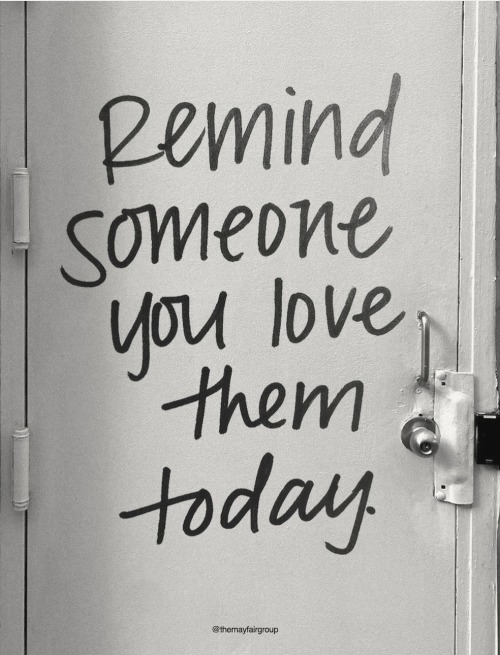 Remind
someone
you love
them
today.
@themayfairgroup